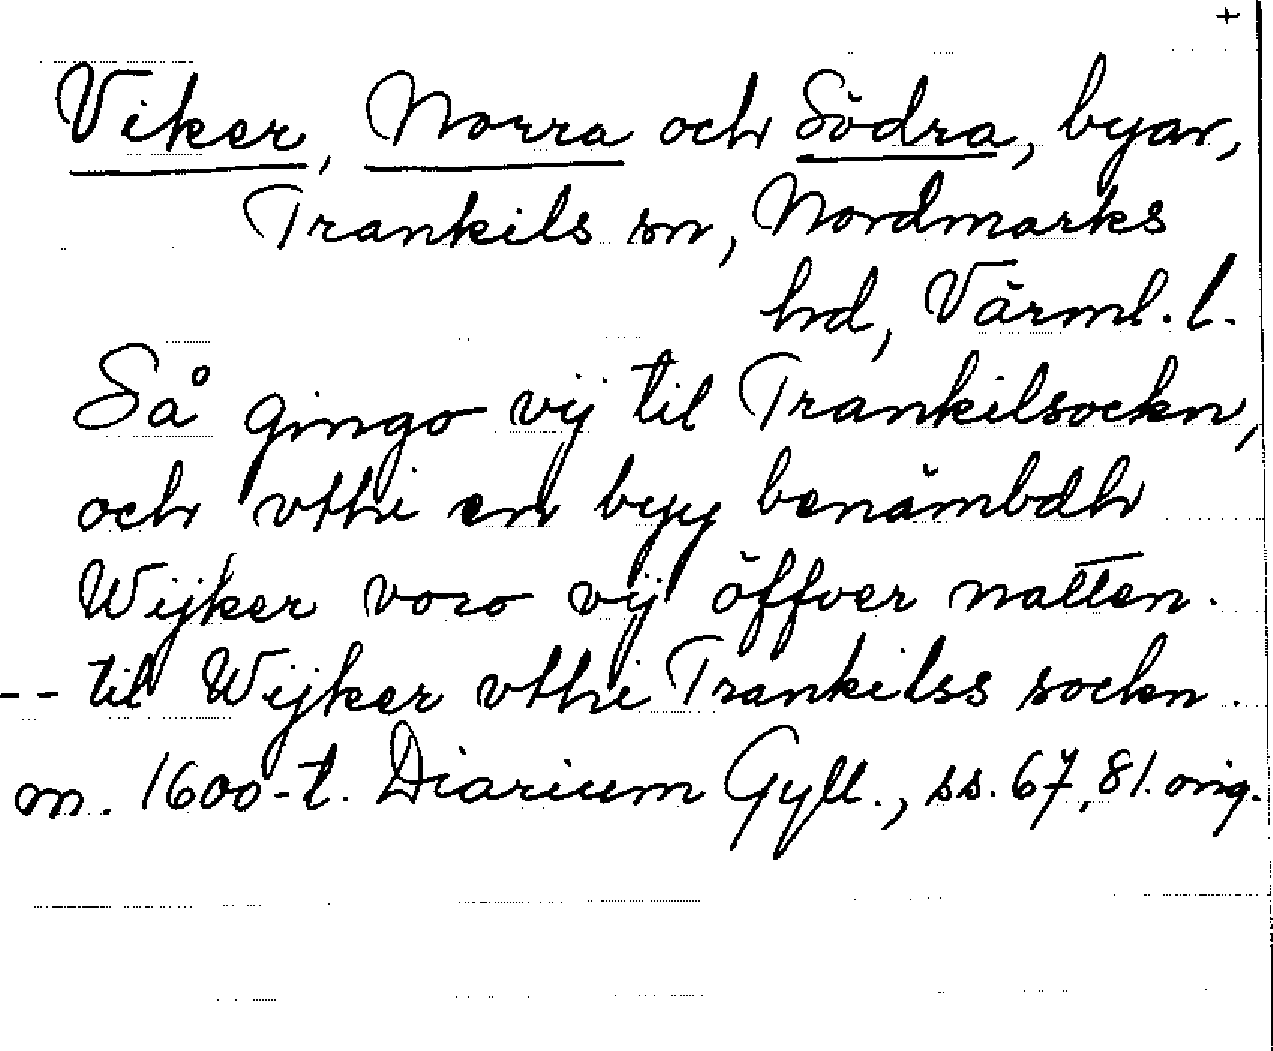 +
Viker, Norra och Södra, byar,
Trankils sn, Nordmarks
hd, Värml. l.
Så gingo vij til Trankilsockn,
och vthi en byy benämbdh
Wijker voro vij öffver natten.
-- til Wijker vthi Trankilss sockn.
m. 1600-t. Diarium Gyll., ss. 67, 81. orig.